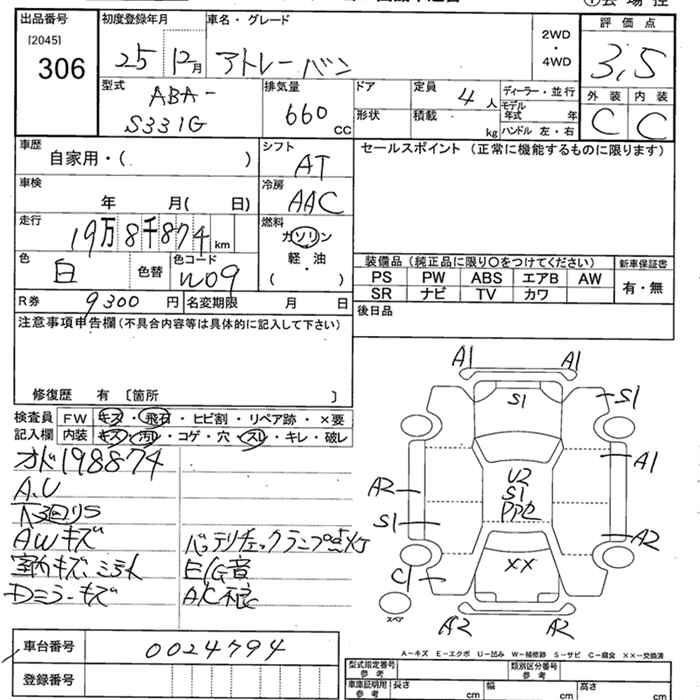 出品番号 初度登録年月 車名・グレード 評価点
[2045]
306 25 12月 アトレーバン 2WD・4WD 3,5
型式 ABA-S331G 排気量 660 cc ドア 形状 定員 4 人 積載 kg
ディーラー・並行
モデル年式 年
ハンドル 左・右
外装 内装
C C
車歴 自家用・( ) シフト AT
セールスポイント (正常に機能するものに限ります)
車検 年 月( 日) 冷房 AAC
走行 19万8千874 km 燃料 ガソリン・軽・油 ( )
色 白 色替 色コード W09
装備品 (純正品に限り○をつけてください) 新車保証書
PS PW ABS エアB AW 有・無
SR ナビ TV カワ
R券 9300 円 名変期限 月 日
後日品
注意事項申告欄(不具合内容等は具体的に記入して下さい)
修復歴 有 〔箇所 〕
検査員 FW キズ・飛石・ヒビ割・リペア跡・×要
記入欄 内装 キズ・汚れ・コゲ・穴・スレ・キレ・破レ
オド198874
A,U
下廻りS
AWキズ バッテリチェックランプ点灯
室内キズ、 E/G音
Dミラーキズ A/C不良
A1 A1
S1 S1
A1
A2 U2
S1
S1
A2
C1 XX
スペア
A2 A2
車台番号 0024794
登録番号
A-キズ E-エクボ U-凹み W-補修跡 S-サビ C-腐食 ××-交換済
型式指定番号 参考 類別区分番号 参考
車庫証明用 参考 長さ cm 幅 cm 高さ cm